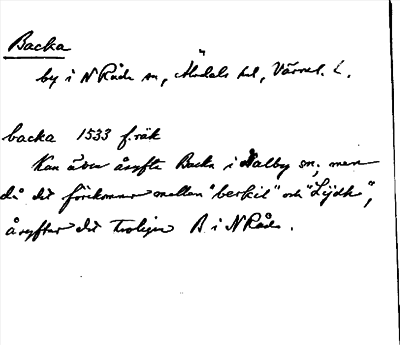 Backa
by i N Råda sn, Älvdals hd, Värml. l.
backa 1533 f.räk
Kan även åsyfta Backa i Dalby sn, men
då det förekommer mellan "berkil" och "Lijdh",
åsyftar det troligen B i N Råda.